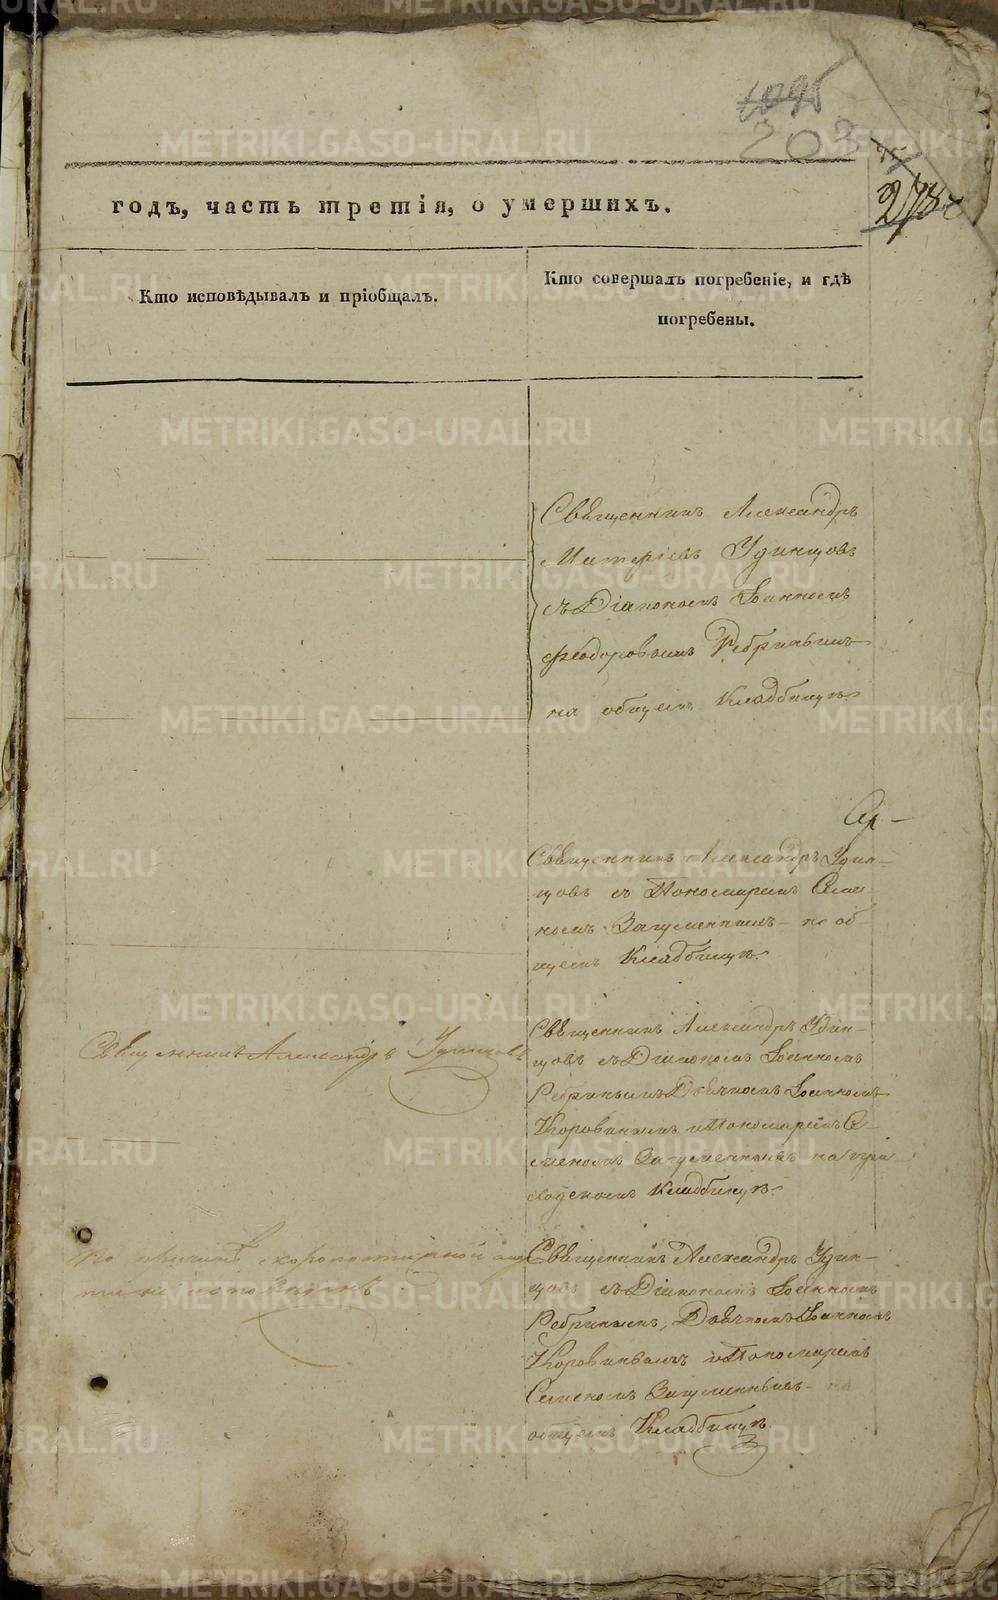 1095
203
278
годъ, часть третія, о умершихъ.
Кто исповѣдывалъ и пріобщалъ.
Кто совершалъ погребеніе, и гдѣ
погребены.
Священникъ Александръ
Матфіевъ Удинцовъ
съ Діакономъ Іоанномъ
Феодоровымъ Ребринымъ
на общемъ Кладбищѣ
Священникъ Александръ Удин-
цовъ съ Пономаремъ Семе
номъ Загуменнымъ на об
щемъ Кладбищѣ.
Священникъ Александръ Удинцовъ
Священникъ Александръ Удин-
цовъ съ Діакономъ Іоанномъ
Ребринымъ Дьячкомъ Іоанномъ
Коровинымъ и Пономаремъ Се-
меномъ Загуменнымъ на при
ходскомъ Кладбищѣ.
по причинѣ скоропостижной
Священникъ Александръ Удин-
цовъ съ Діакономъ Іоанномъ
Ребринымъ, Дьячкомъ Іоанномъ
Коровинымъ и Пономаремъ
Семеномъ Загуменнымъ на
общемъ Кладбищѣ.
METRIKI.GASO-URAL.RU